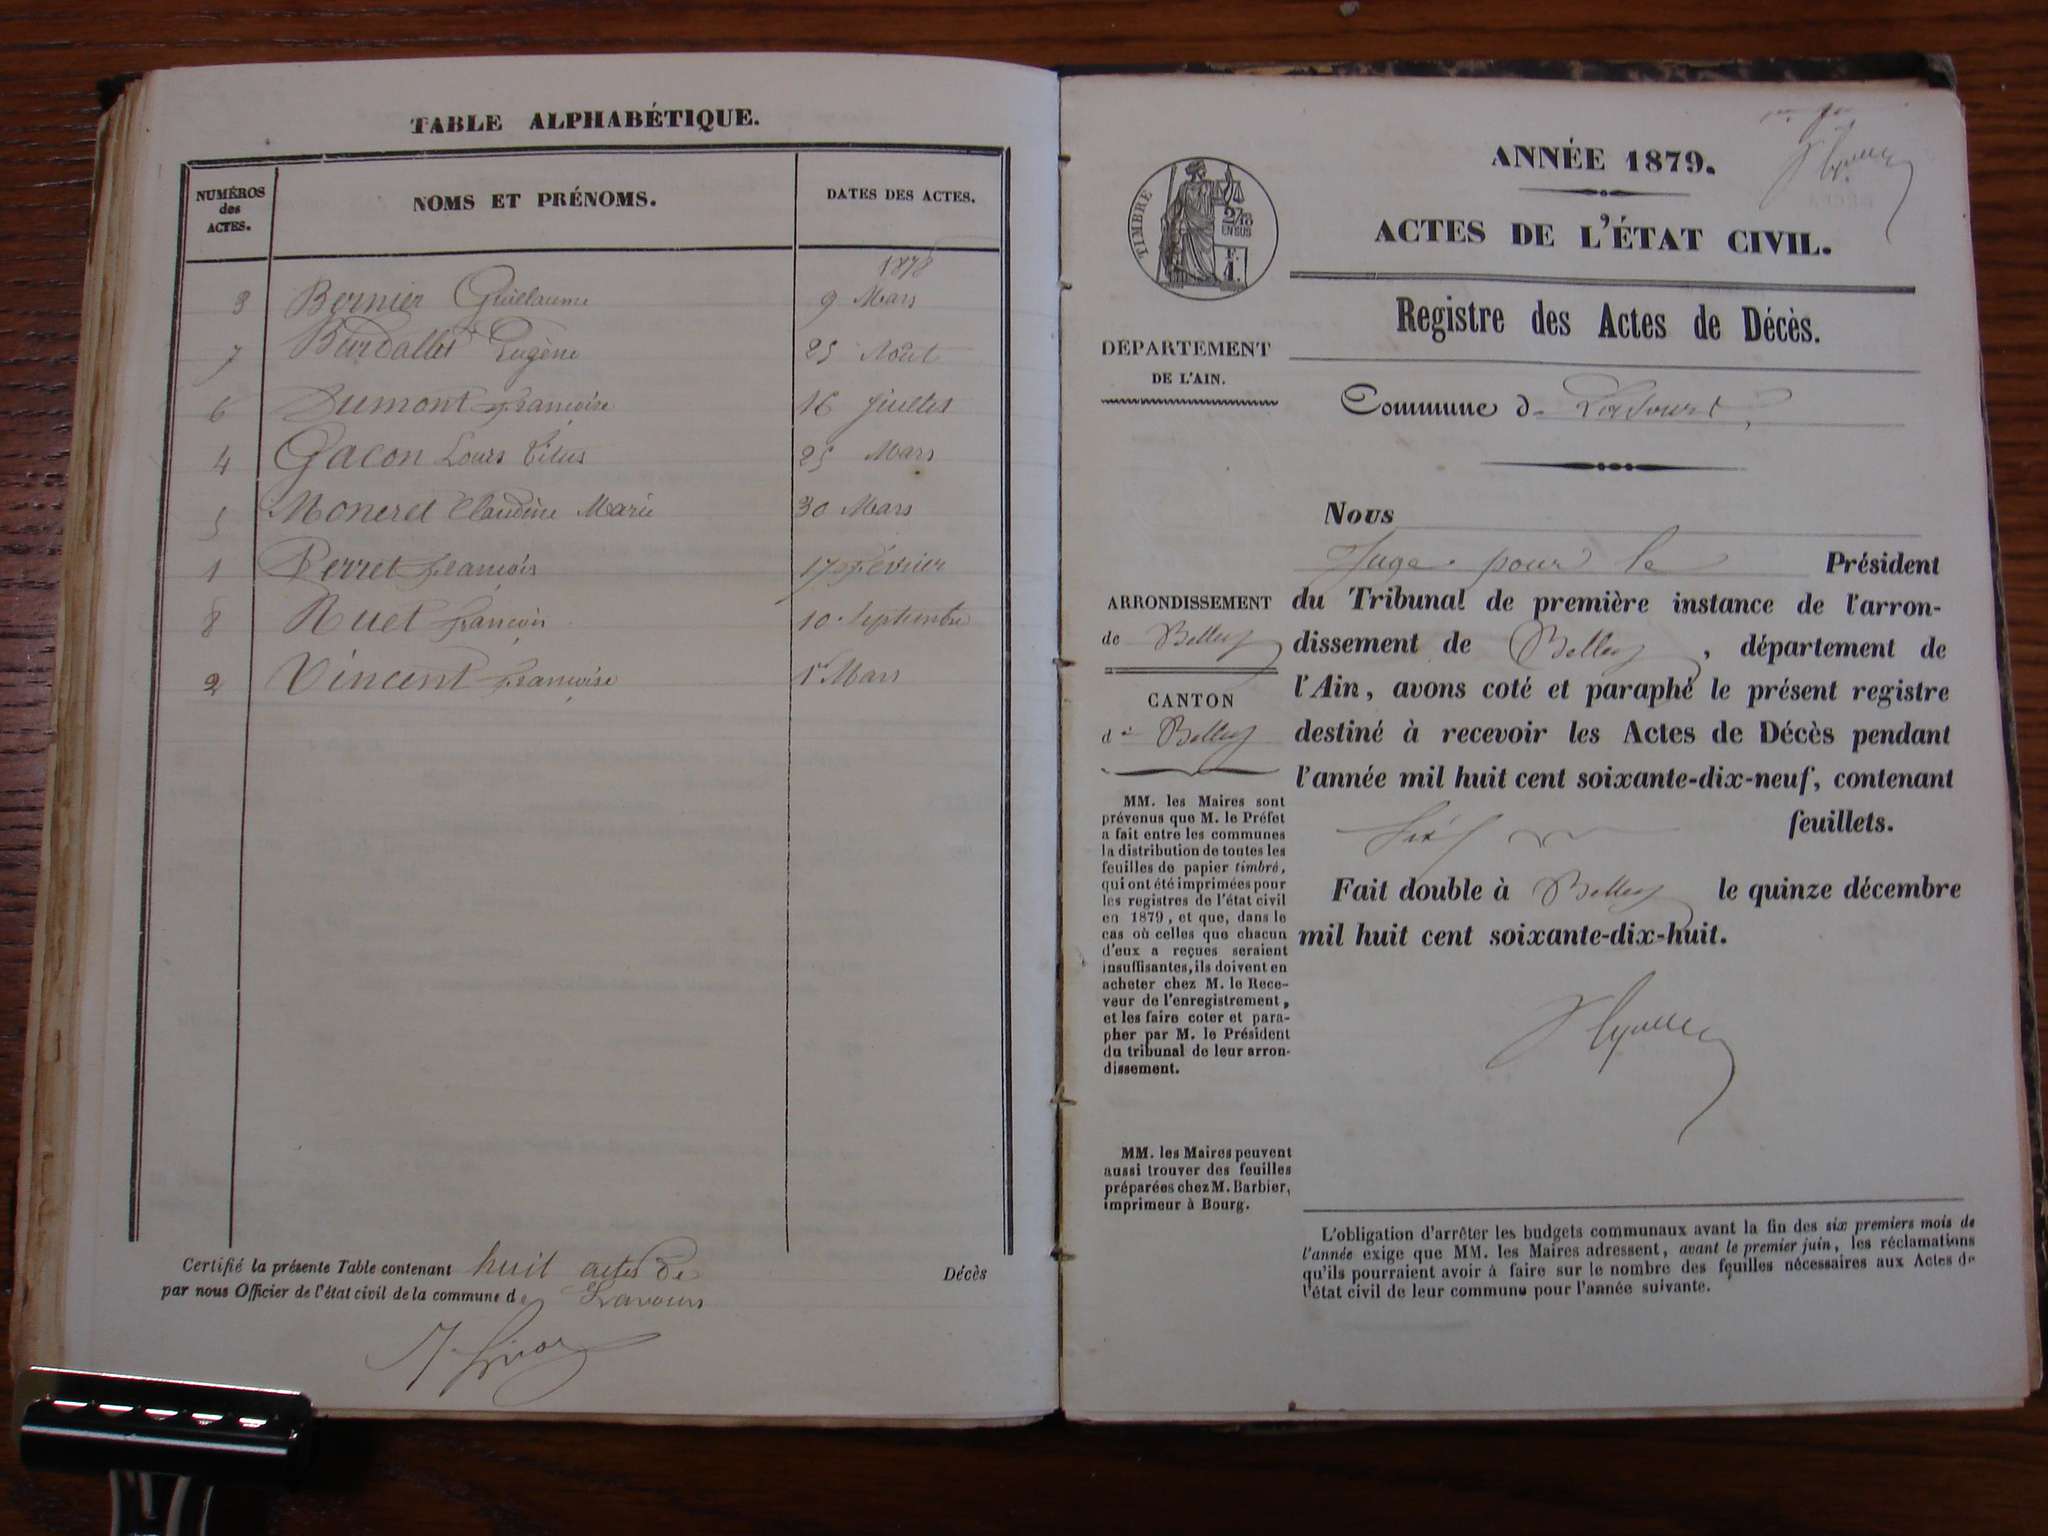 TABLE ALPHABÉTIQUE.
NUMÉROS des ACTES.
NOMS ET PRÉNOMS.
DATES DES ACTES.
1878
3 Bernier Guillaume 9 Mars
7 Burdallet Eugène 25 Août
6 Dumont Françoise 16 Juillet
4 Gacon Louis Titus 25 Mars
5 Moneret Claudine Marie 30 Mars
1 Perret François 17 Février
8 Ruet François 10 Septembre
2 Vincent Françoise 1er Mars
Certifié la présente Table contenant huit actes de Décès
par nous Officier de l'état civil de la commune de Lavours
ANNÉE 1879.
ACTES DE L'ÉTAT CIVIL.
TIMBRE
2/10
EN SUS
F.
1.
Registre des Actes de Décès.
DEPARTEMENT
DE L'AIN.
Commune de Lavours
ARRONDISSEMENT
de Belley
CANTON
de Belley
MM. les Maires sont
prévenus que M. le Préfet
a fait entre les communes
la distribution de toutes les
feuilles de papier timbré,
qui ont été imprimées pour
les registres de l'état civil
en 1879, et que, dans le
cas où celles que chacun
d'eux a reçues seraient
insuffisantes, ils doivent en
acheter chez M. le Rece-
veur de l'enregistrement,
et les faire coter et para-
pher par M. le Président
du tribunal de leur arron-
dissement.
MM. les Maires peuvent
aussi trouver des feuilles
préparées chez M. Barbier,
imprimeur à Bourg.
Nous
Juge pour le Président
du Tribunal de première instance de l'arron-
dissement de Belley, département de
l'Ain, avons coté et paraphé le présent registre
destiné à recevoir les Actes de Décès pendant
l'année mil huit cent soixante-dix-neuf, contenant
feuillets.
Fait double à Belley le quinze décembre
mil huit cent soixante-dix-huit.
L'obligation d'arrêter les budgets communaux avant la fin des six premiers mois de
l'année exige que MM. les Maires adressent, avant le premier juin, les réclamations
qu'ils pourraient avoir à faire sur le nombre des feuilles nécessaires aux Actes de
l'état civil de leur commune pour l'année suivante.